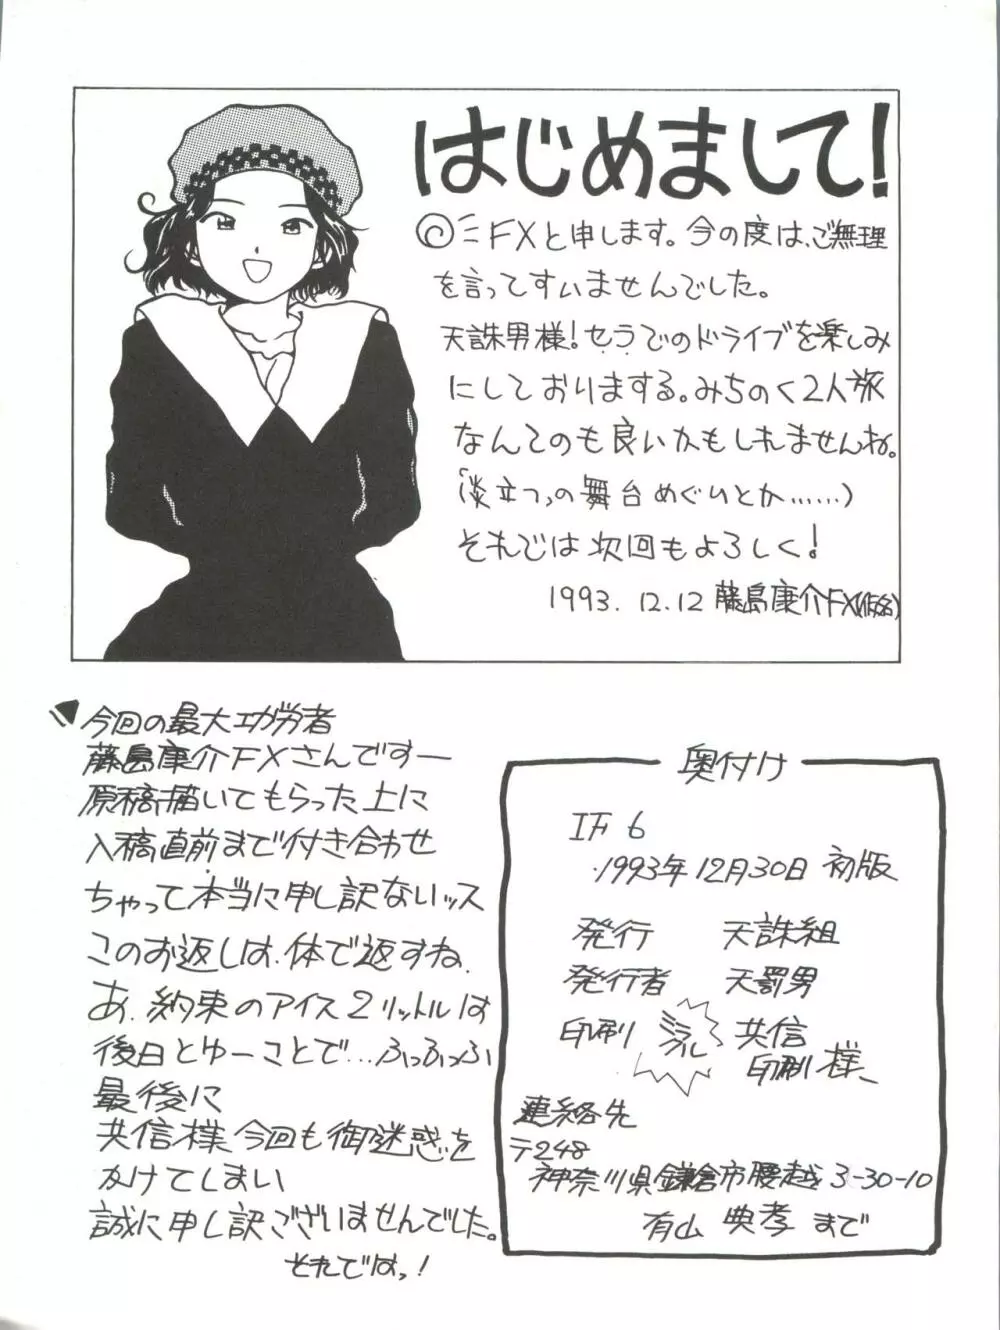 はじめまして!
FXと申します。今の度は、ご無理
を言ってすいませんでした。
天誅男様!セラでのドライブを楽しみ
にしておりまする。みちのく2人旅
なんてのも良いかもしれませんね。
の舞台めぐりとか……)
それでは次回もよろしく!
1993.12.12 藤島康介FX(仮名)
今回の最大功労者
藤島康介FXさんですー
原稿描いてもらった上に
入稿直前まで付き合わせ
ちゃって本当に申し訳ないッス
このお返しは、体で返すね、
あ、約束のアイス2リットルは
後日とゆーことで…ふっふっふ
最後に
共信様、今回も御迷惑を
かけてしまい
誠に申し訳ございませんでした。
それではっ!
奥付け
IF 6
1993年12月30日 初版
発行 天誅組
発行者 天罰男
印刷 共信
印刷様、
連絡先
〒248
神奈川県鎌倉市腰越3-30-10
有山 典孝 まで